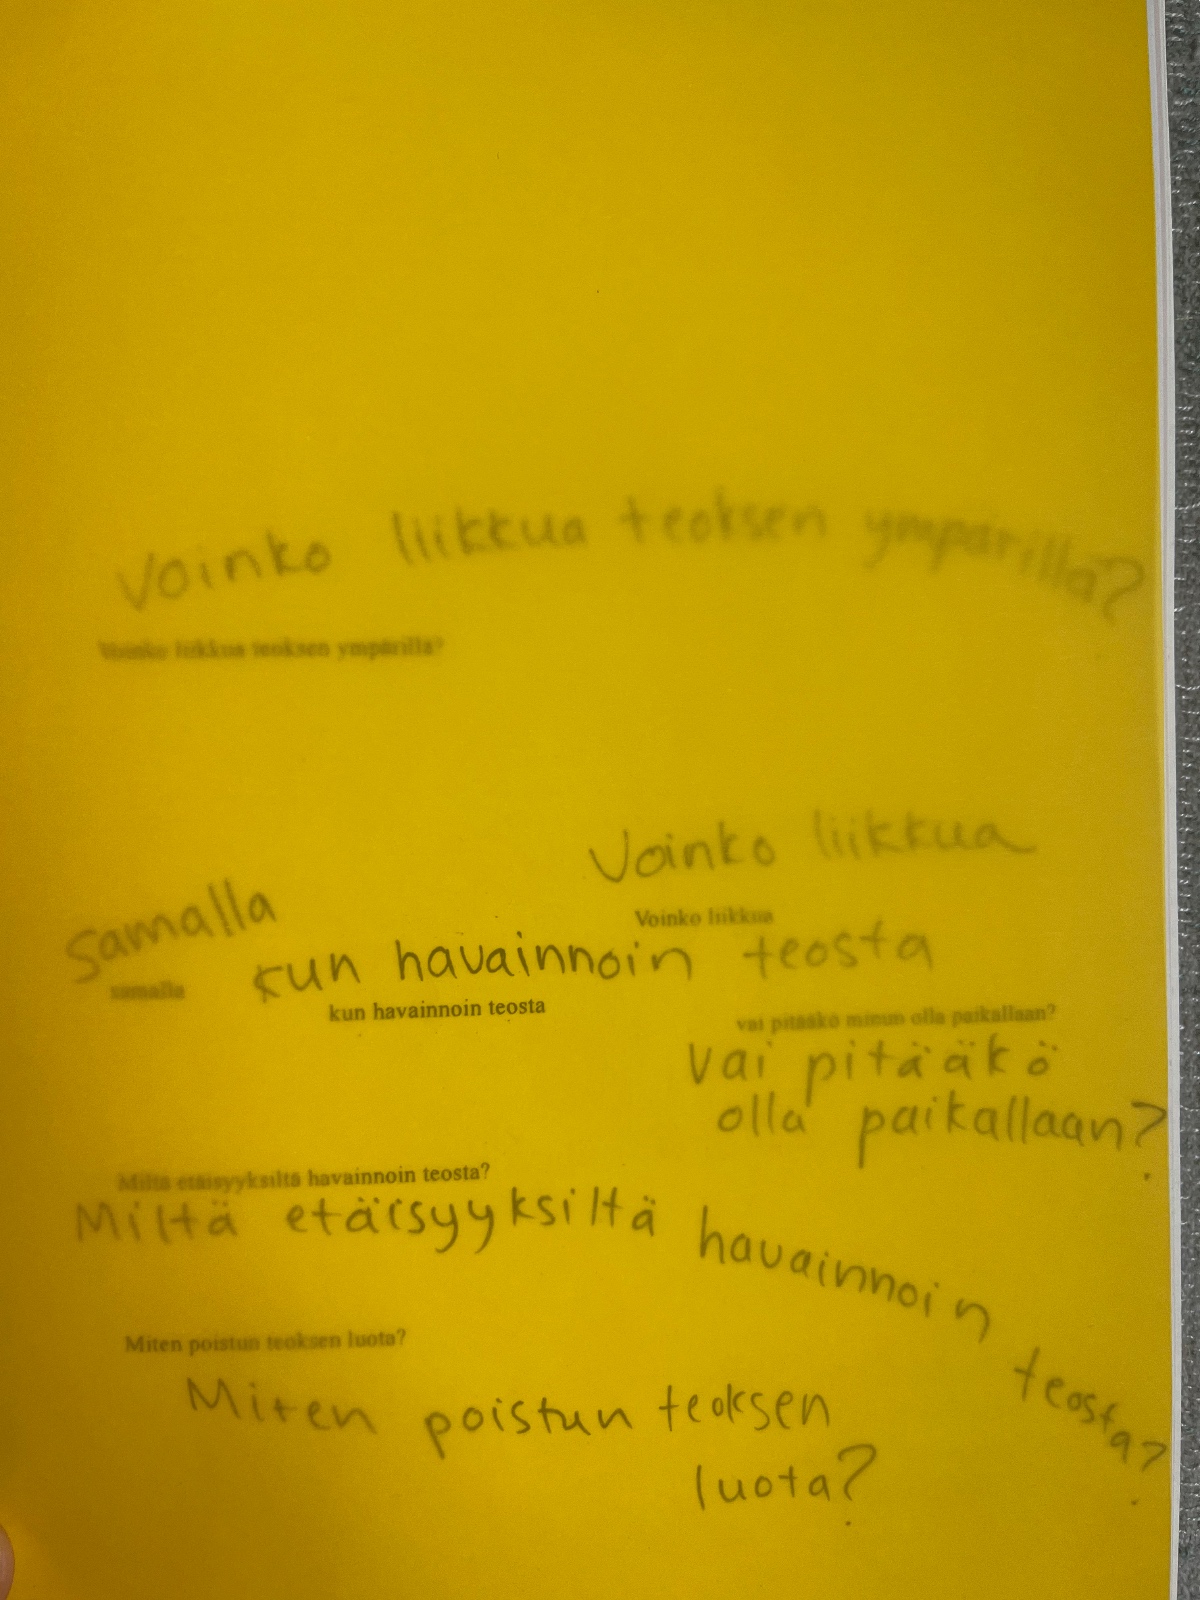 Voinko liikkua teoksen ympärillä?
Voinko liikkua teoksen ympärillä?
Voinko liikkua
Voinko liikkua
samalla
samalla
kun havainnoin teosta
kun havainnoin teosta
vai pitääkö minun olla paikallaan?
Vai pitääkö
olla paikallaan?
Miltä etäisyyksiltä havainnoin teosta?
Miltä etäisyyksiltä havainnoin teosta?
Miten poistun teoksen luota?
Miten poistun teoksen
luota?